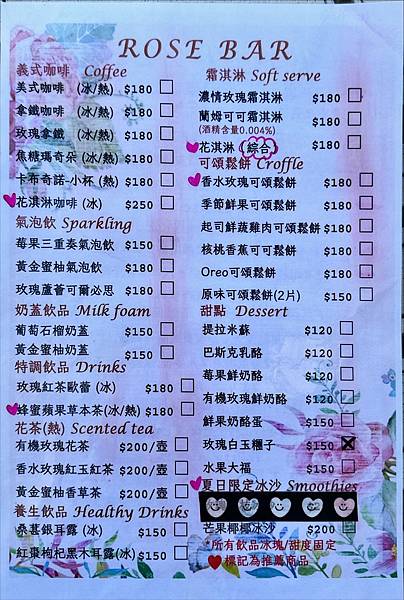 ROSE BAR
義式咖啡 Coffee
美式咖啡 (冰/熱) $180
拿鐵咖啡 (冰/熱) $180
玫瑰拿鐵 (冰/熱) $180
焦糖瑪奇朵 (冰/熱) $180
卡布奇諾-小杯 (熱) $180
花淇淋咖啡 (冰) $250
氣泡飲 Sparkling
莓果三重奏氣泡飲 $150
黃金蜜柚氣泡飲 $180
玫瑰蘆薈可爾必思 $180
奶蓋飲品 Milk foam
葡萄石榴奶蓋 $150
黃金蜜柚奶蓋 $150
特調飲品 Drinks
玫瑰紅茶歐蕾 (冰) $180
蜂蜜蘋果草本茶(冰/熱) $180
花茶(熱) Scented tea
有機玫瑰花茶 $200/壺
香水玫瑰紅玉紅茶 $200/壺
黃金蜜柚香草茶 $200/壺
養生飲品 Healthy Drinks
桑葚銀耳露 (冰) $150
紅棗枸杞黑木耳露(冰) $150
霜淇淋 Soft serve
濃情玫瑰霜淇淋 $180
蘭姆可可霜淇淋 $180
(酒精含量0.004%)
花淇淋 (綜合) $180
可頌鬆餅 Croffle
香水玫瑰可頌鬆餅 $180
季節鮮果可頌鬆餅 $180
起司鮮蔬雞肉可頌鬆餅 $180
核桃香蕉可可鬆餅 $180
Oreo可頌鬆餅 $180
原味可頌鬆餅(2片) $150
甜點 Dessert
提拉米蘇 $120
巴斯克乳酪 $120
莓果鮮奶酪 $120
有機玫瑰鮮奶酪 $120
鮮奶酪蛋 $150
玫瑰白玉糰子 $150
水果大福 $150
夏日限定冰沙 Smoothies
芒果椰椰冰沙 $200
*所有飲品冰塊/甜度固定
標記為推薦商品